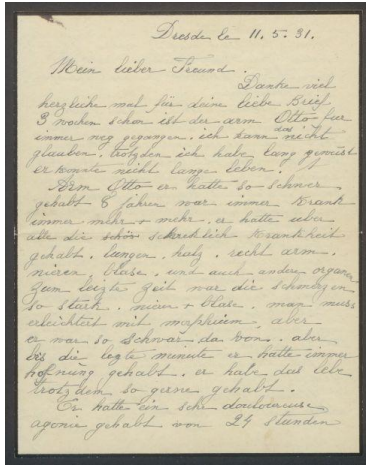 Dresde le 11. 5. 31.
Mein lieber Freund.
Danke viel
herzliche mal für deine liebe Brief
3 wochen schon ist der arm Otto fur
immer weg gegangen. ich kann das nicht
glauben, trotzden ich habe lang gewusst
er konnte nicht lange leben.
Arm Otto er hatte so schwer
gehabt 8 jahren war immer Krank
immer mehr + mehr. er hatte ueber
alle die schrecklich Krankheit
gehabt. lungen, halz, recht arm,
nieren, blase, und auch andere organen
Zum lezte Zeit war die schmerzen
so stark, nieren + blase, man muss
erleichtert mit morphium, aber
er war so schwar da von, aber
bis die lezte minute er hatte immer
hofnung gehabt. er habe das lebe
trotzdem so gerne gehabt.
Er hatte ein sehr douloureuse
agonie gehabt von 24 stunden